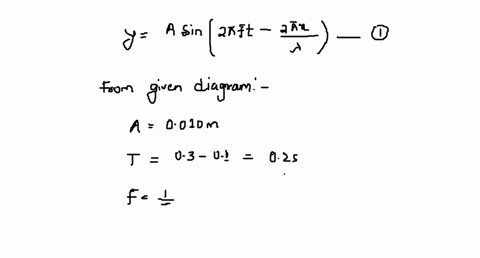 y = A sin (2πft - 2πx/λ) — ①
From given diagram:-
A = 0.010m
T = 0.3 - 0.1 = 0.2s
f = 1/